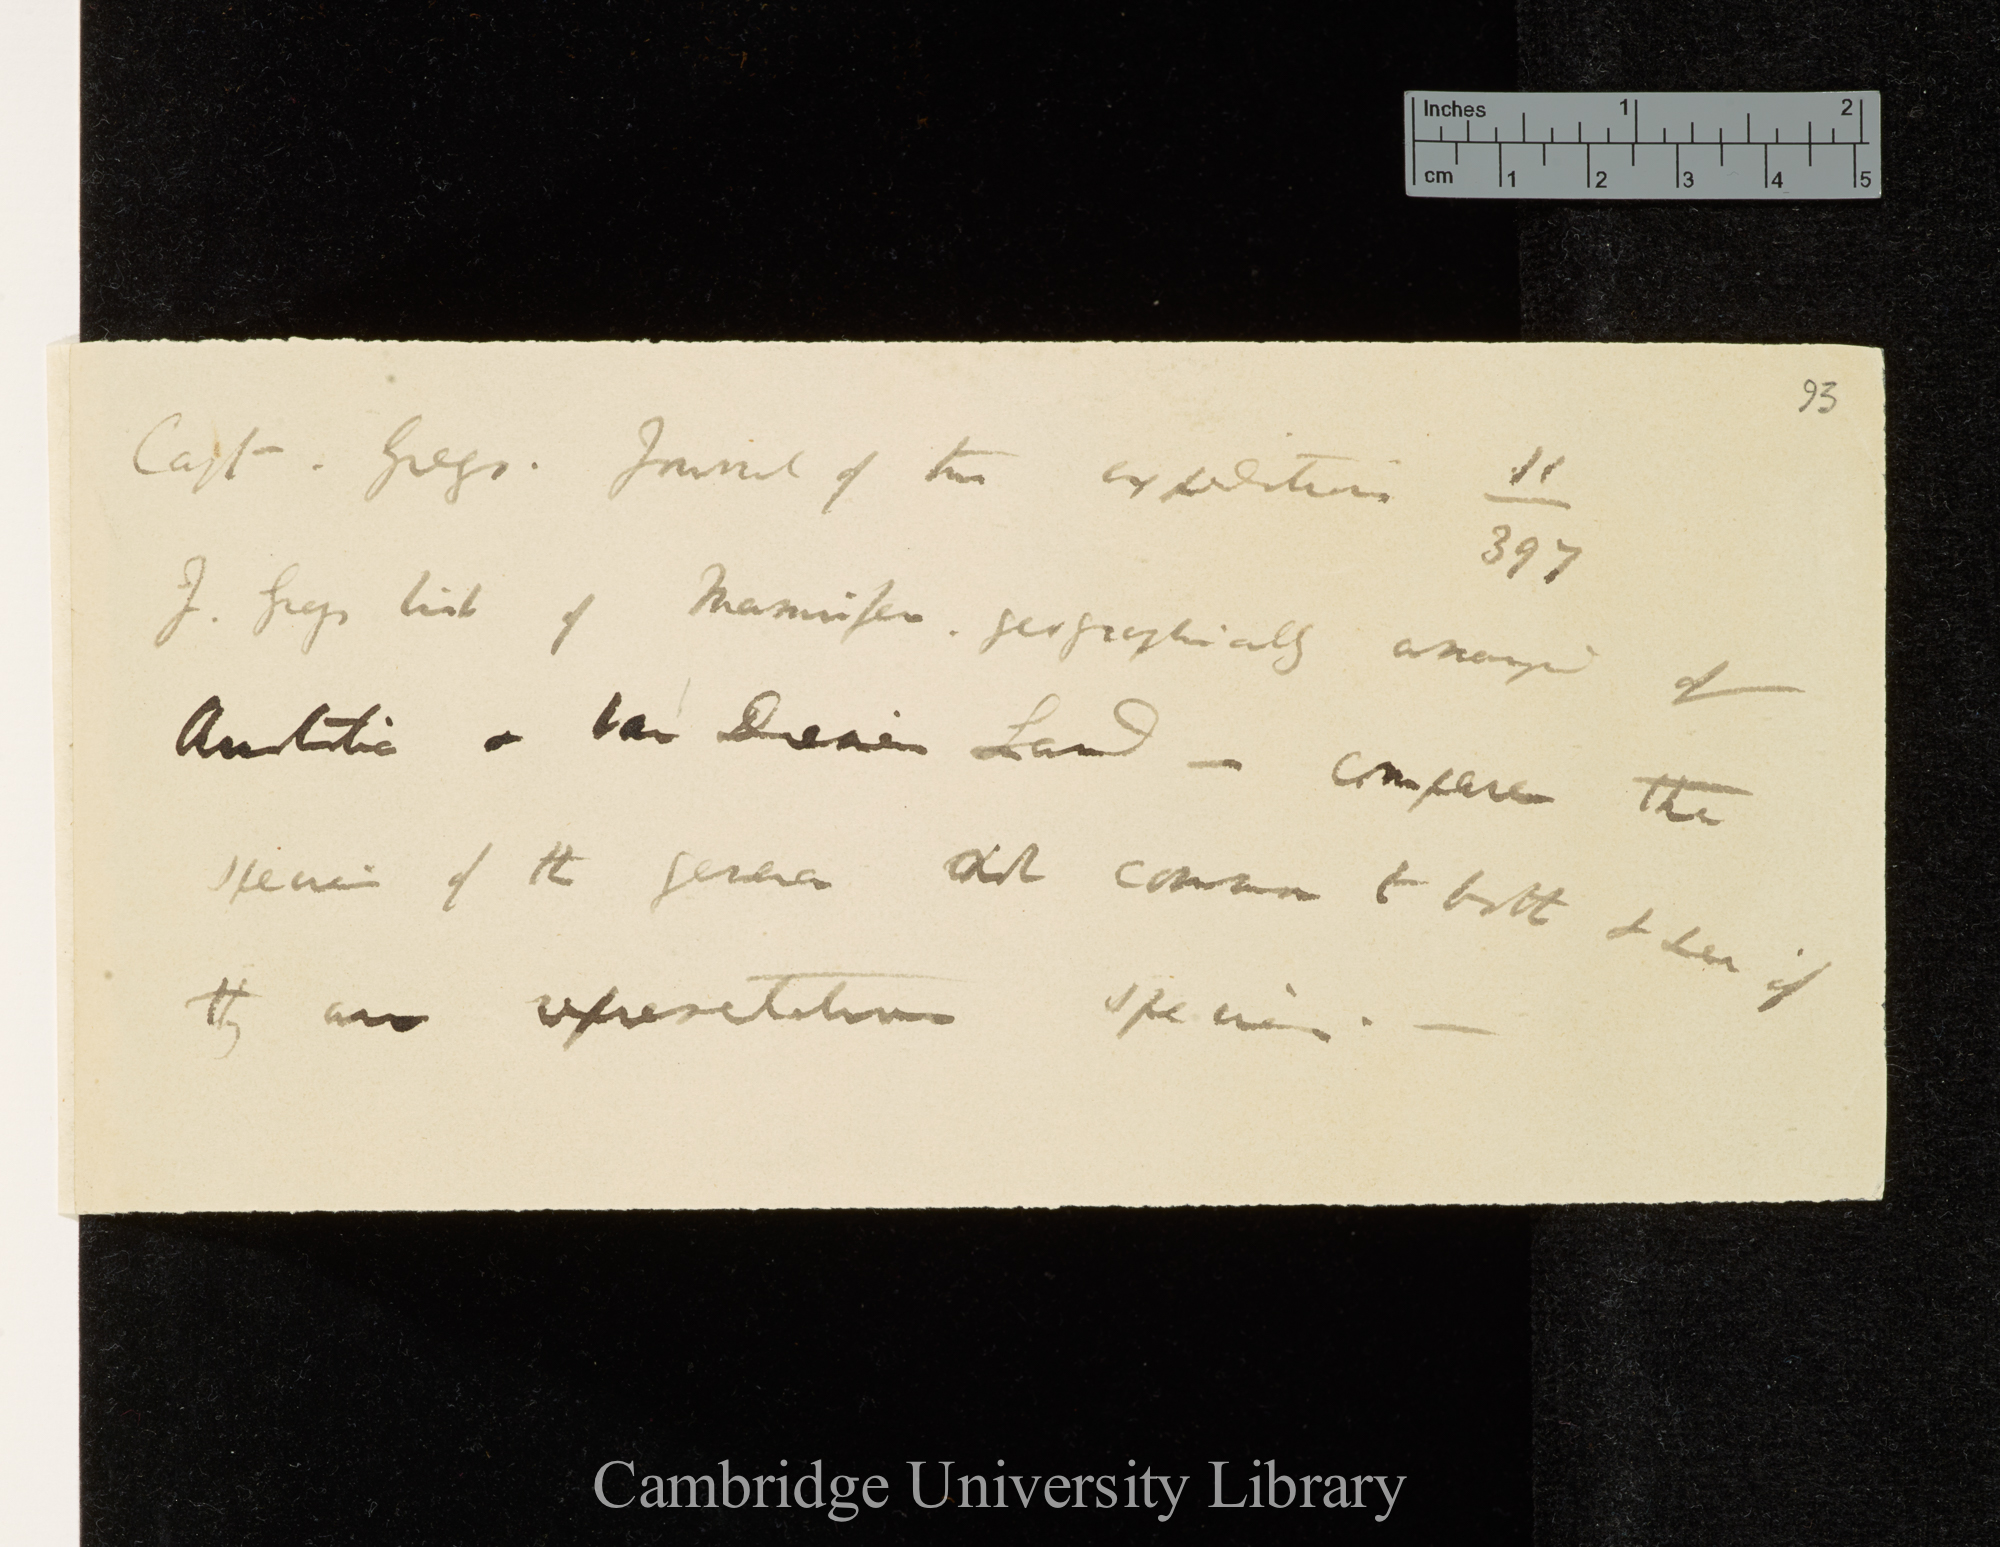 Inches 1 2
cm 1 2 3 4 5
93
Capt. Greys. Journal of two expeditions 11/397
J. Grays list of Mammifer. geographically arranged of
Australia & Van Diemen Land — compare the
species of the genera not common to both & see if
they are representative species. —
Cambridge University Library